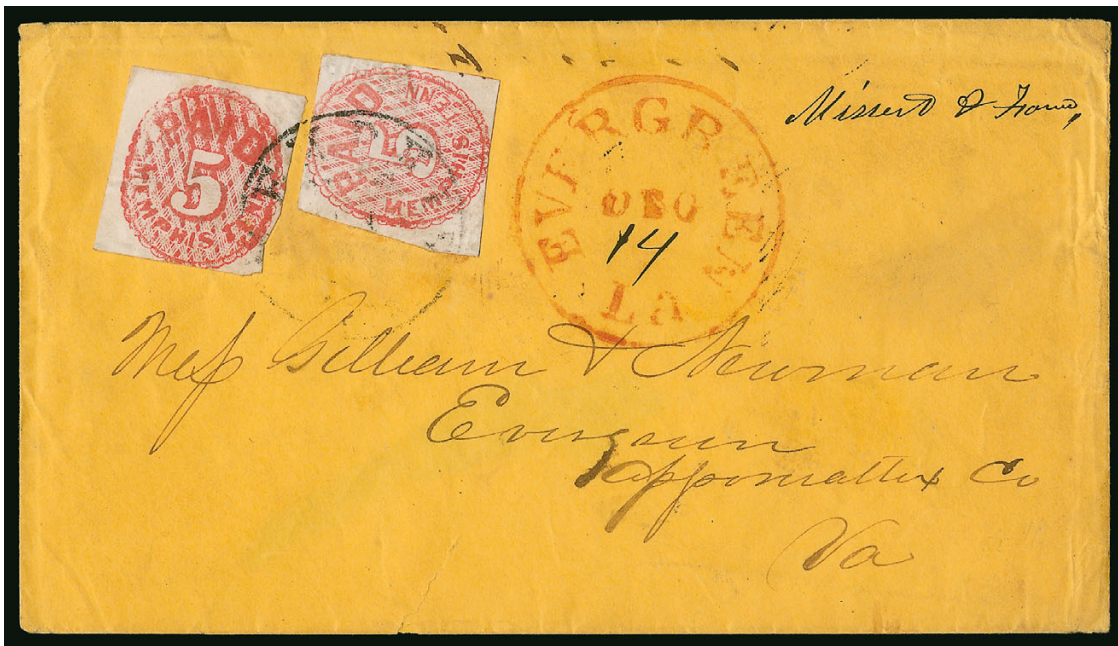 PAID
5
MEMPHIS TENN
PAID
5
MEMPHIS TENN
EVERGREEN
DEC
14
La
Missent & Forwd,
Mess Gilliam & Newman
Evergreen
Appomattox Co
Va